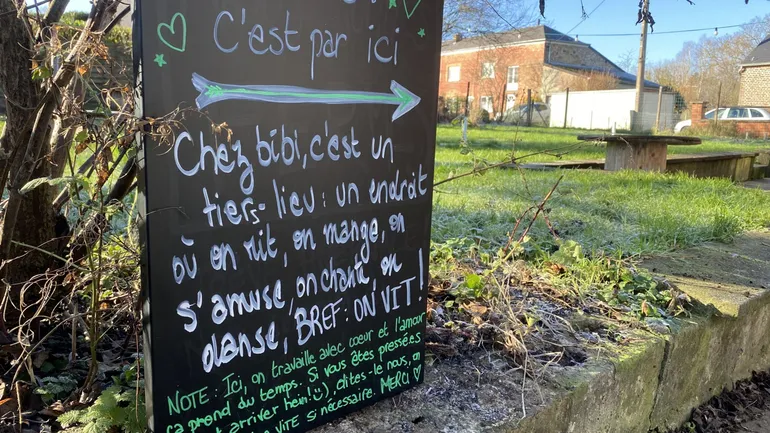 c'est par ici
Chez bibi, c'est un
tiers-lieu : un endroit
où on rit, on mange, on
s'amuse, on chante, on
danse, BREF : ON VIT !
NOTE : Ici, on travaille avec coeur et l'amour
ça prend du temps. Si vous êtes pressées
arriver hein! :), dites-le nous, on
VITE si nécessaire. MERCI